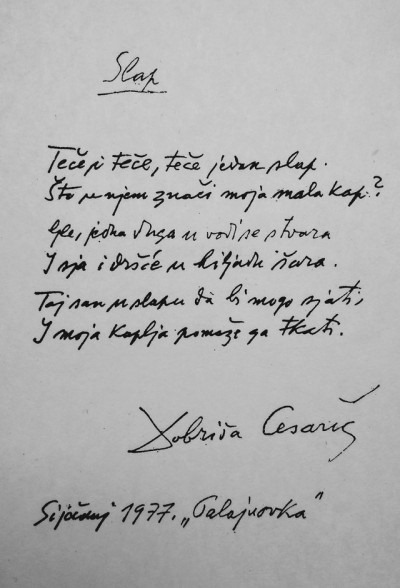 Slap
Teče i teče, teče jedan slap.
Što u njem znači moja mala kap?
Gle, jedna duga u vodi se stvara
I sja i dršće u hiljadu šara.
Taj san u slapu da bi mogo sjati,
I moja kaplja pomaže ga tkati.
Dobriša Cesarić
Siječanj 1977. „Galajnovka"